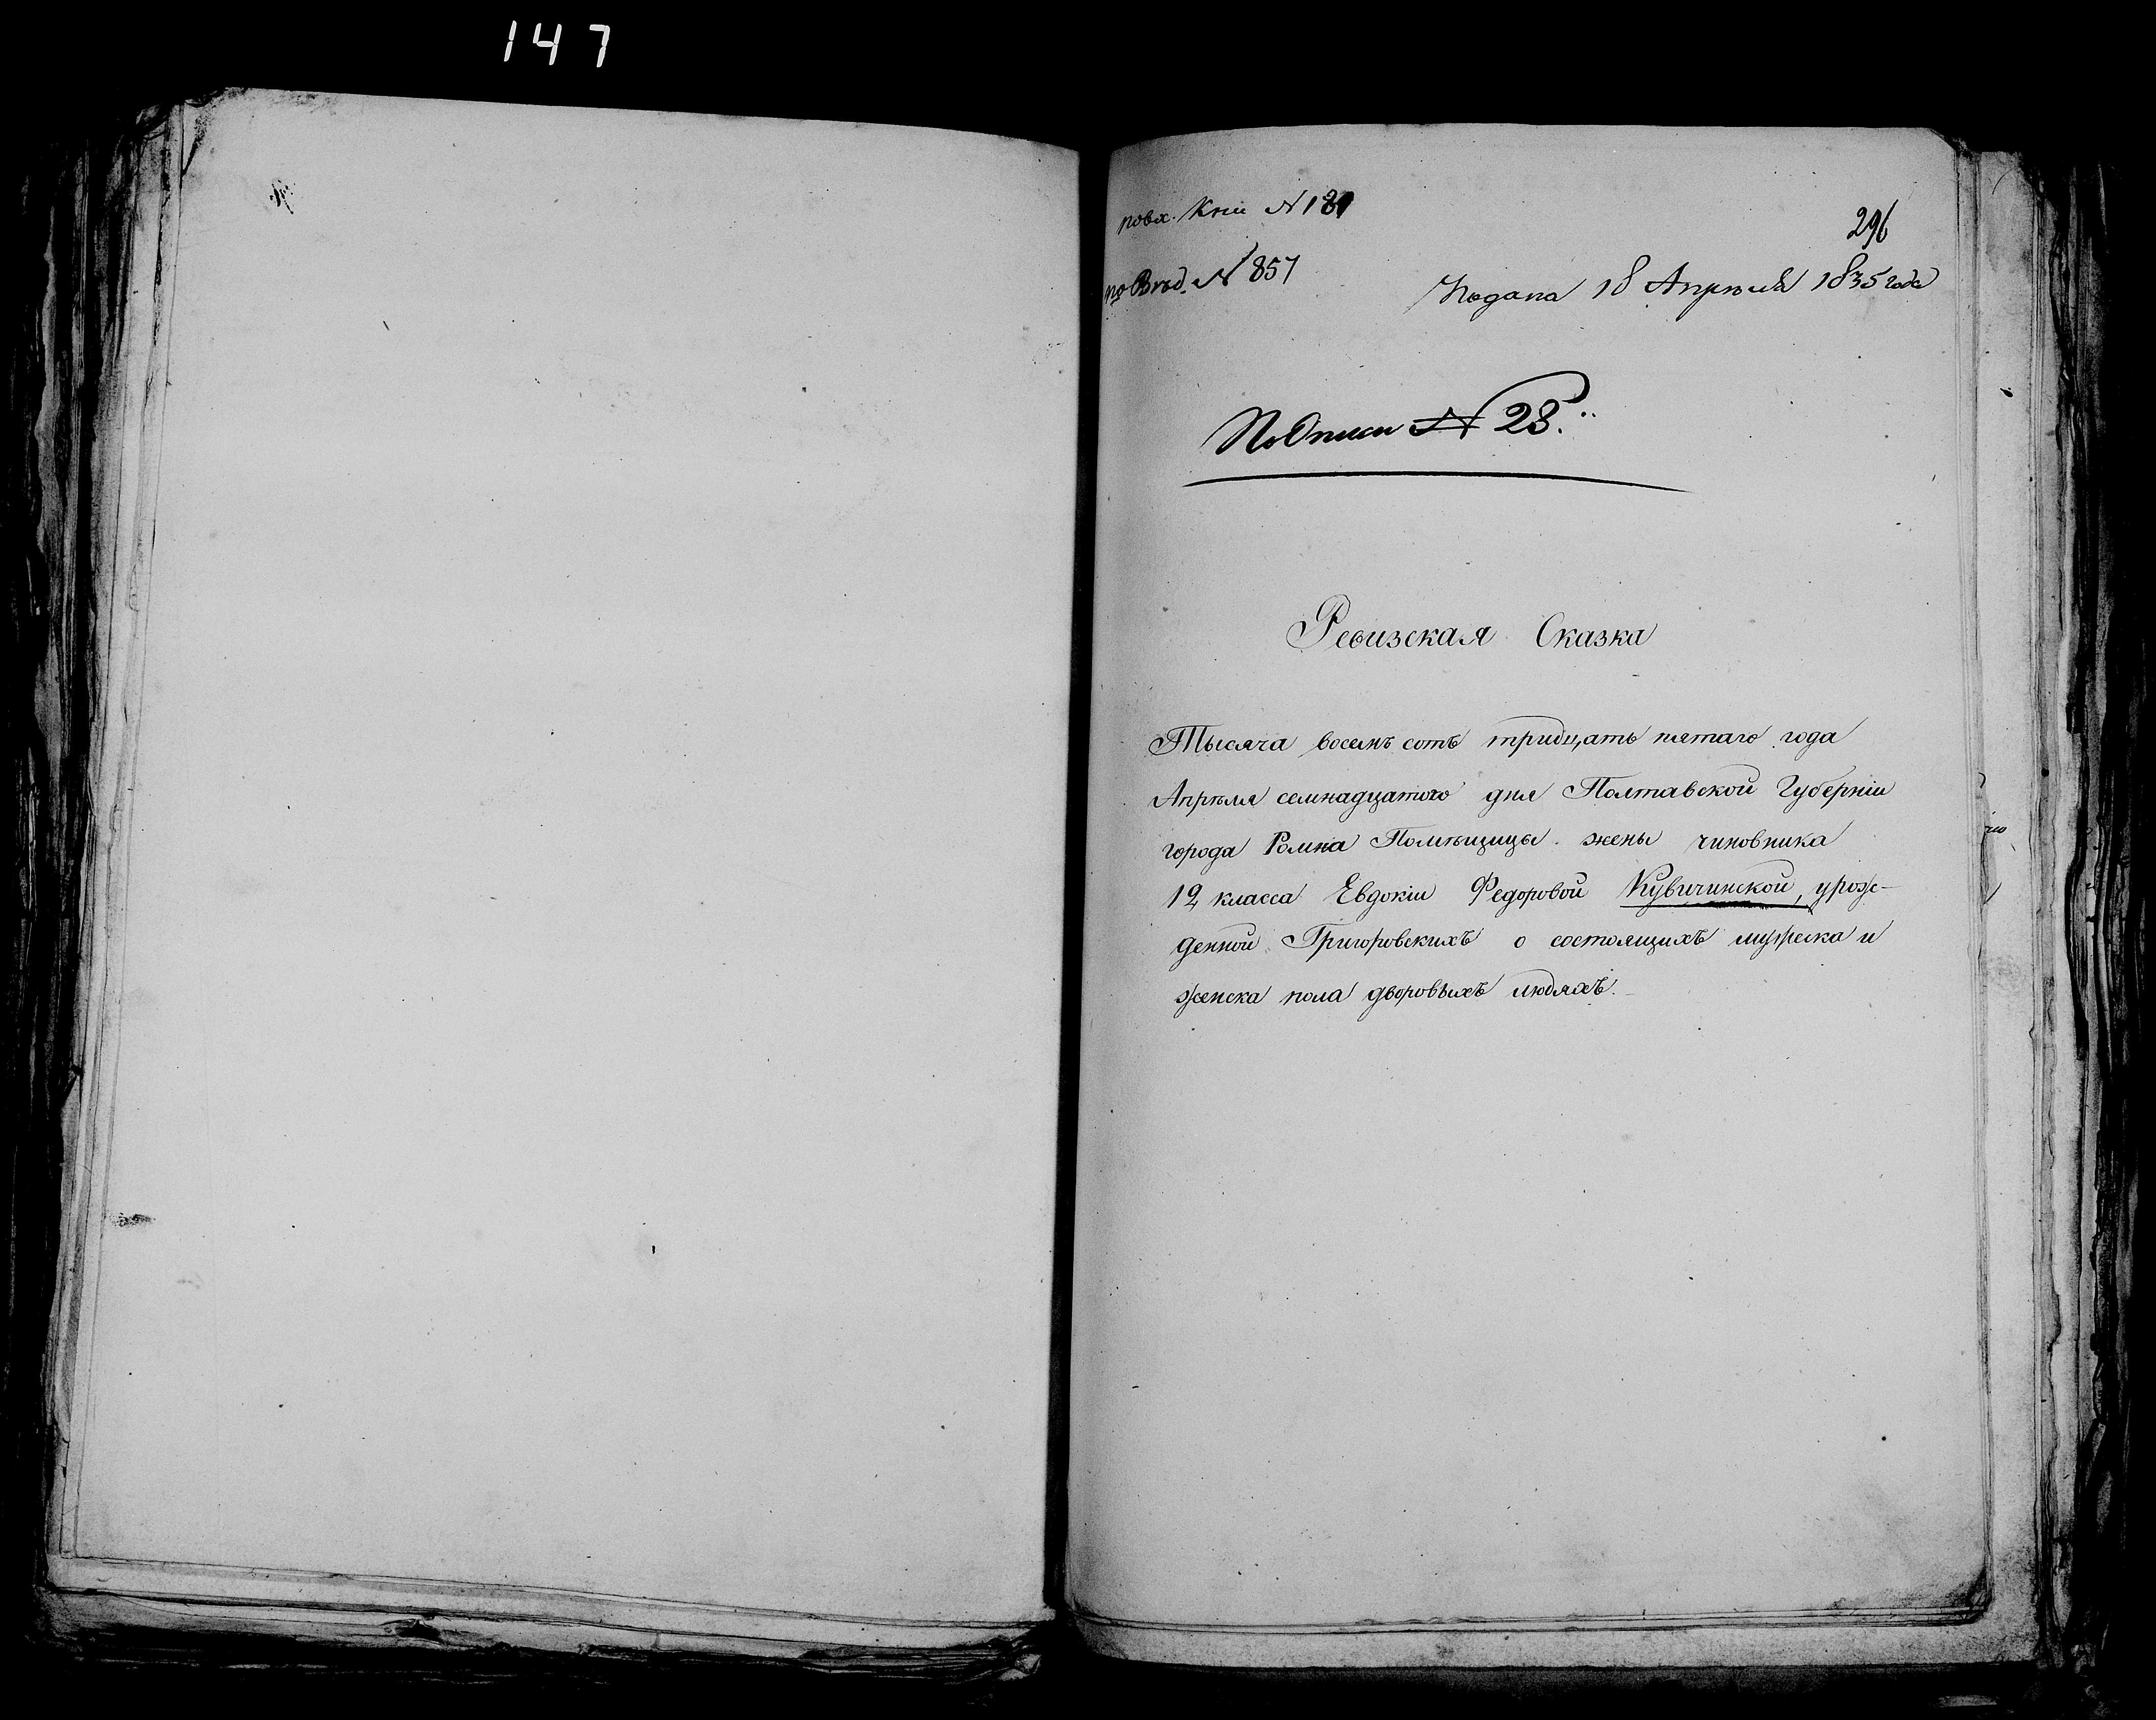 147
по вх. Кни N 181
296
по Вѣд. N 857
Подана 18 Апрѣля 1835 года
По Описи N 28.
Ревизская Сказка
Тысяча восемь сотъ тридцать пятаго года
Апрѣля семнадцатого дня Полтавской Губерніи
города Ромна Помѣщицы жены чиновника
12 класса Евдокіи Федоровой Кувичинской, урож-
денной Григоровскихъ о состоящихъ мужеска и
женска пола дворовыхъ людяхъ.